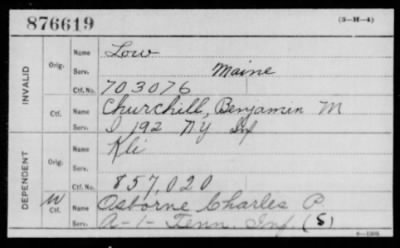 876619 (3-M-4)
INVALID
Orig.
Name Low
Serv. Maine
Ctf. No. 703076
Ctf.
Name Churchill, Benjamin M
Serv. D 192 NY Inf
DEPENDENT
Orig.
Name Kli
Serv.
Ctf. No. 857,020
W Ctf.
Name Osborne Charles P.
Serv. A-1- Tenn. Inf. (S)